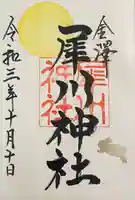 金澤
犀川神社
犀川
神社
令和三年十月十日